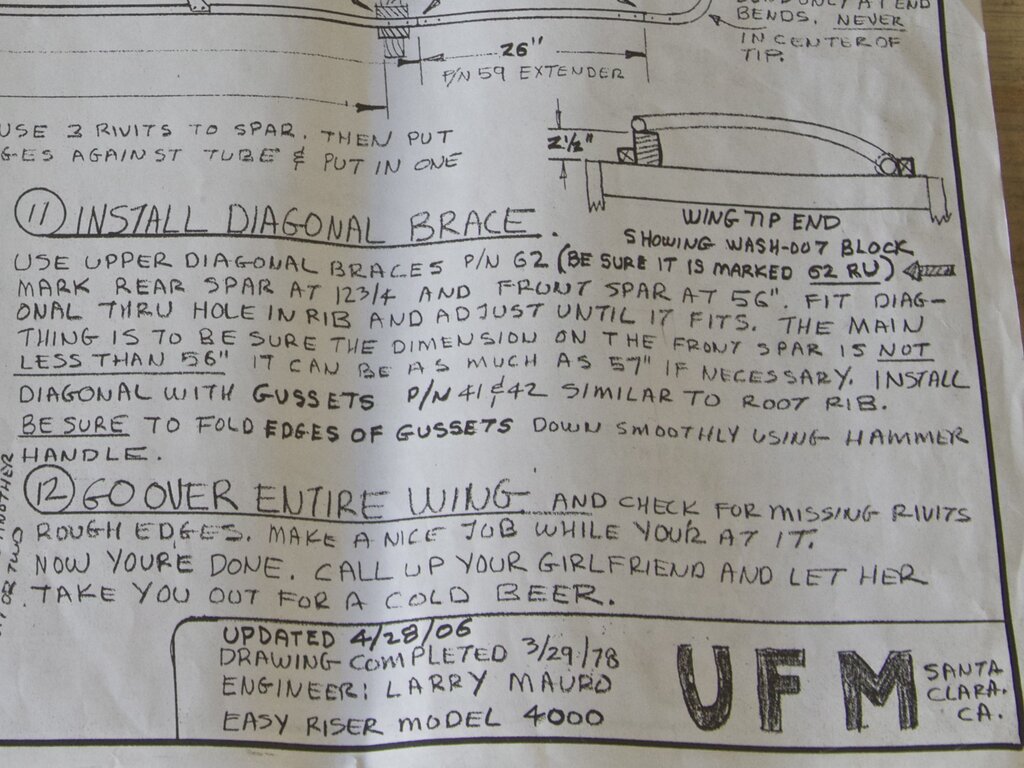 BENDS. NEVER
IN CENTER OF
TIP.
26"
P/N 59 EXTENDER
USE 3 RIVITS TO SPAR. THEN PUT
GES AGAINST TUBE & PUT IN ONE
2 1/2"
WING TIP END
SHOWING WASH-OUT BLOCK
11 INSTALL DIAGONAL BRACE.
USE UPPER DIAGONAL BRACES P/N 62 (BE SURE IT IS MARKED 62 RU)
MARK REAR SPAR AT 12 3/4 AND FRONT SPAR AT 56". FIT DIAG-
ONAL THRU HOLE IN RIB AND ADJUST UNTIL IT FITS. THE MAIN
THING IS TO BE SURE THE DIMENSION ON THE FRONT SPAR IS NOT
LESS THAN 56" IT CAN BE AS MUCH AS 57" IF NECESSARY. INSTALL
DIAGONAL WITH GUSSETS P/N 41 & 42 SIMILAR TO ROOT RIB.
BE SURE TO FOLD EDGES OF GUSSETS DOWN SMOOTHLY USING HAMMER
HANDLE.
12 GO OVER ENTIRE WING AND CHECK FOR MISSING RIVITS
ROUGH EDGES. MAKE A NICE JOB WHILE YOU'R AT IT.
NOW YOURE DONE. CALL UP YOUR GIRLFRIEND AND LET HER
TAKE YOU OUT FOR A COLD BEER.
OR TWO
UPDATED 4/28/06
DRAWING COMPLETED 3/29/78
ENGINEER: LARRY MAURO
EASY RISER MODEL 4000
UFM
SANTA
CLARA.
CA.